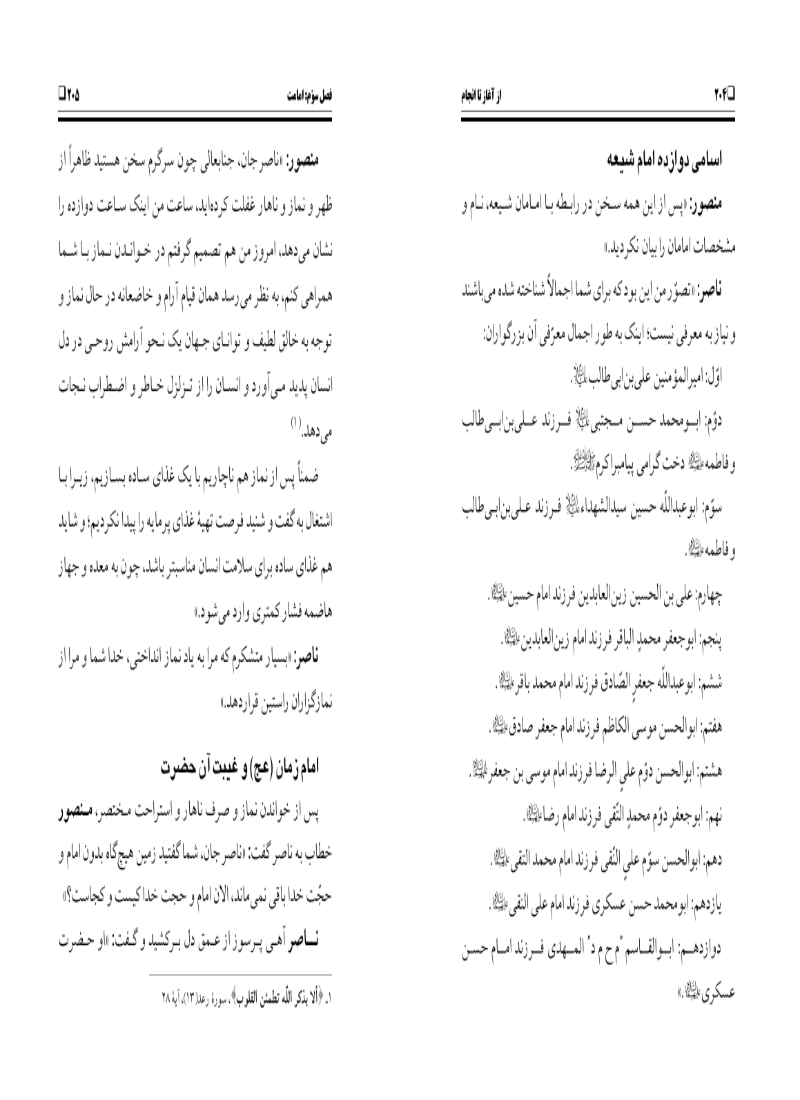 ❏۲۰۴ از آغاز تا انجام
اسامی دوازده امام شیعه
منصور: «پس از این همه سخن در رابطه با امامان شیعه، نام و
مشخصات امامان را بیان نکردید.»
ناصر: «تصوّر من این بود که برای شما اجمالاً شناخته شده می‌باشند
و نیاز به معرفی نیست؛ اینک به طور اجمال معرّفی آن بزرگواران:
اوّل: امیرالمؤمنین علی‌بن‌ابی‌طالب علیه‌السلام.
دوّم: ابومحمد حسن مجتبی علیه‌السلام فرزند علی‌بن‌ابی‌طالب
و فاطمه علیهاالسلام دخت گرامی پیامبر اکرم ﷺ.
سوّم: ابوعبداللّه حسین سیدالشهداء علیه‌السلام فرزند علی‌بن‌ابی‌طالب
و فاطمه علیهاالسلام.
چهارم: علی بن الحسین زین‌العابدین فرزند امام حسین علیه‌السلام.
پنجم: ابوجعفر محمدٍ الباقر فرزند امام زین‌العابدین علیه‌السلام.
ششم: ابوعبداللّه جعفرٍ الصّادق فرزند امام محمد باقر علیه‌السلام.
هفتم: ابوالحسن موسی الکاظم فرزند امام جعفر صادق علیه‌السلام.
هشتم: ابوالحسن دوّم علیٍ الرضا فرزند امام موسی بن جعفر علیه‌السلام.
نهم: ابوجعفر دوّم محمدٍ التّقی فرزند امام رضا علیه‌السلام.
دهم: ابوالحسن سوّم علیٍ النّقی فرزند امام محمد التقی علیه‌السلام.
یازدهم: ابومحمد حسن عسکری فرزند امام علی النقی علیه‌السلام.
دوازدهم: ابوالقاسم "م ح م د" المهدی فرزند امام حسن
عسکری علیه‌السلام.»
فصل سوّم: امامت ۲۰۵❏
منصور: «ناصر جان، جنابعالی چون سرگرم سخن هستید ظاهراً از
ظهر و نماز و ناهار غفلت کرده‌اید، ساعت من اینک ساعت دوازده را
نشان می‌دهد، امروز من هم تصمیم گرفتم در خواندن نماز با شما
همراهی کنم، به نظر می‌رسد همان قیام آرام و خاضعانه در حال نماز و
توجه به خالق لطیف و توانای جهان یک نحو آرامش روحی در دل
انسان پدید می‌آورد و انسان را از تزلزل خاطر و اضطراب نجات
می‌دهد.(۱)
ضمناً پس از نماز هم ناچاریم با یک غذای ساده بسازیم، زیرا با
اشتغال به گفت و شنید فرصت تهیهٔ غذای پرمایه را پیدا نکردیم؛ و شاید
هم غذای ساده برای سلامت انسان مناسبتر باشد، چون به معده و جهاز
هاضمه فشار کمتری وارد می‌شود.»
ناصر: «بسیار متشکرم که مرا به یاد نماز انداختی، خدا شما و مرا از
نمازگزاران راستین قرار دهد.»
امام زمان (عج) و غیبت آن حضرت
پس از خواندن نماز و صرف ناهار و استراحت مختصر، منصور
خطاب به ناصر گفت: «ناصر جان، شما گفتید زمین هیچ‌گاه بدون امام و
حجّت خدا باقی نمی‌ماند، الان امام و حجت خدا کیست و کجاست؟»
ناصر آهی پرسوز از عمق دل برکشید و گفت: «او حضرت
۱ـ ﴿ألا بذکر اللّه تطمئن القلوب﴾، سورهٔ رعد(۱۳)، آیهٔ ۲۸